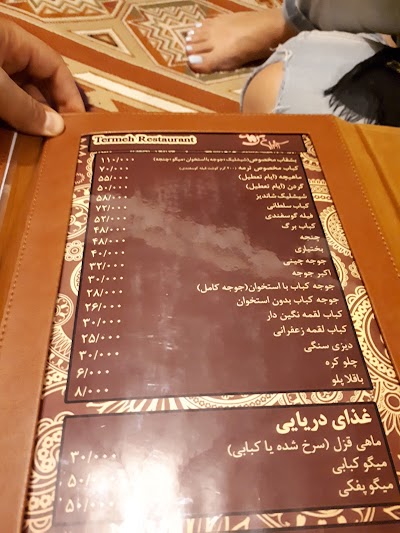 Termeh Restaurant
بشقاب مخصوص(شیشلیک+جوجه با استخوان+میگو+چنجه) ۱۱۰/۰۰۰
کباب مخصوص ترمه گرم گوشت فیله گوسفندی) ۷۰/۰۰۰
ماهیچه (ایام تعطیل) ۵۵/۰۰۰
گردن (ایام تعطیل) ۵۰/۰۰۰
شیشلیک شاندیز ۵۸/۰۰۰
کباب سلطانی ۷۲/۰۰۰
فیله گوسفندی ۵۲/۰۰۰
کباب برگ ۴۸/۰۰۰
چنجه ۴۸/۰۰۰
بختیاری ۴۰/۰۰۰
جوجه چینی ۳۲/۰۰۰
اکبر جوجه ۳۰/۰۰۰
جوجه کباب با استخوان(جوجه کامل) ۲۸/۰۰۰
جوجه کباب بدون استخوان ۲۶/۰۰۰
کباب لقمه نگین دار ۳۰/۰۰۰
کباب لقمه زعفرانی ۲۵/۰۰۰
دیزی سنگی ۳۰/۰۰۰
چلو کره ۶/۰۰۰
باقلا پلو ۸/۰۰۰
غذای دریایی
ماهی قزل (سرخ شده یا کبابی) ۳۰/۰۰۰
میگو کبابی ۵۰/۰۰۰
میگو پفکی ۵۰/۰۰۰